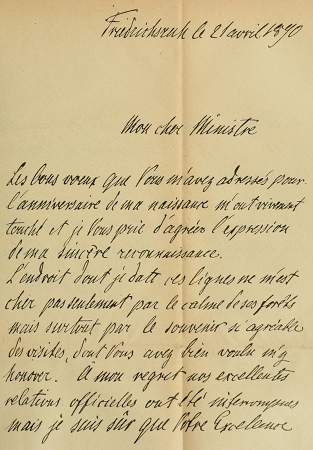 Friedrichsruh le 21 avril 1890
Mon cher Ministre
Les bons voeux que Vous m'avez adressés pour
l'anniversaire de ma naissance m'ont vivement
touché et je Vous prie d'agréer l'expression
de ma sincère reconnaissance.
L'endroit dont je date ces lignes ne m'est
cher pas seulement par le calme de ses forêts
mais surtout par le souvenir si agréable
des visites, dont Vous avez bien voulu m'y
honorer. A mon regret nos excellentes
relations officielles ont été interrompues
mais je suis sûr que Votre Excellence